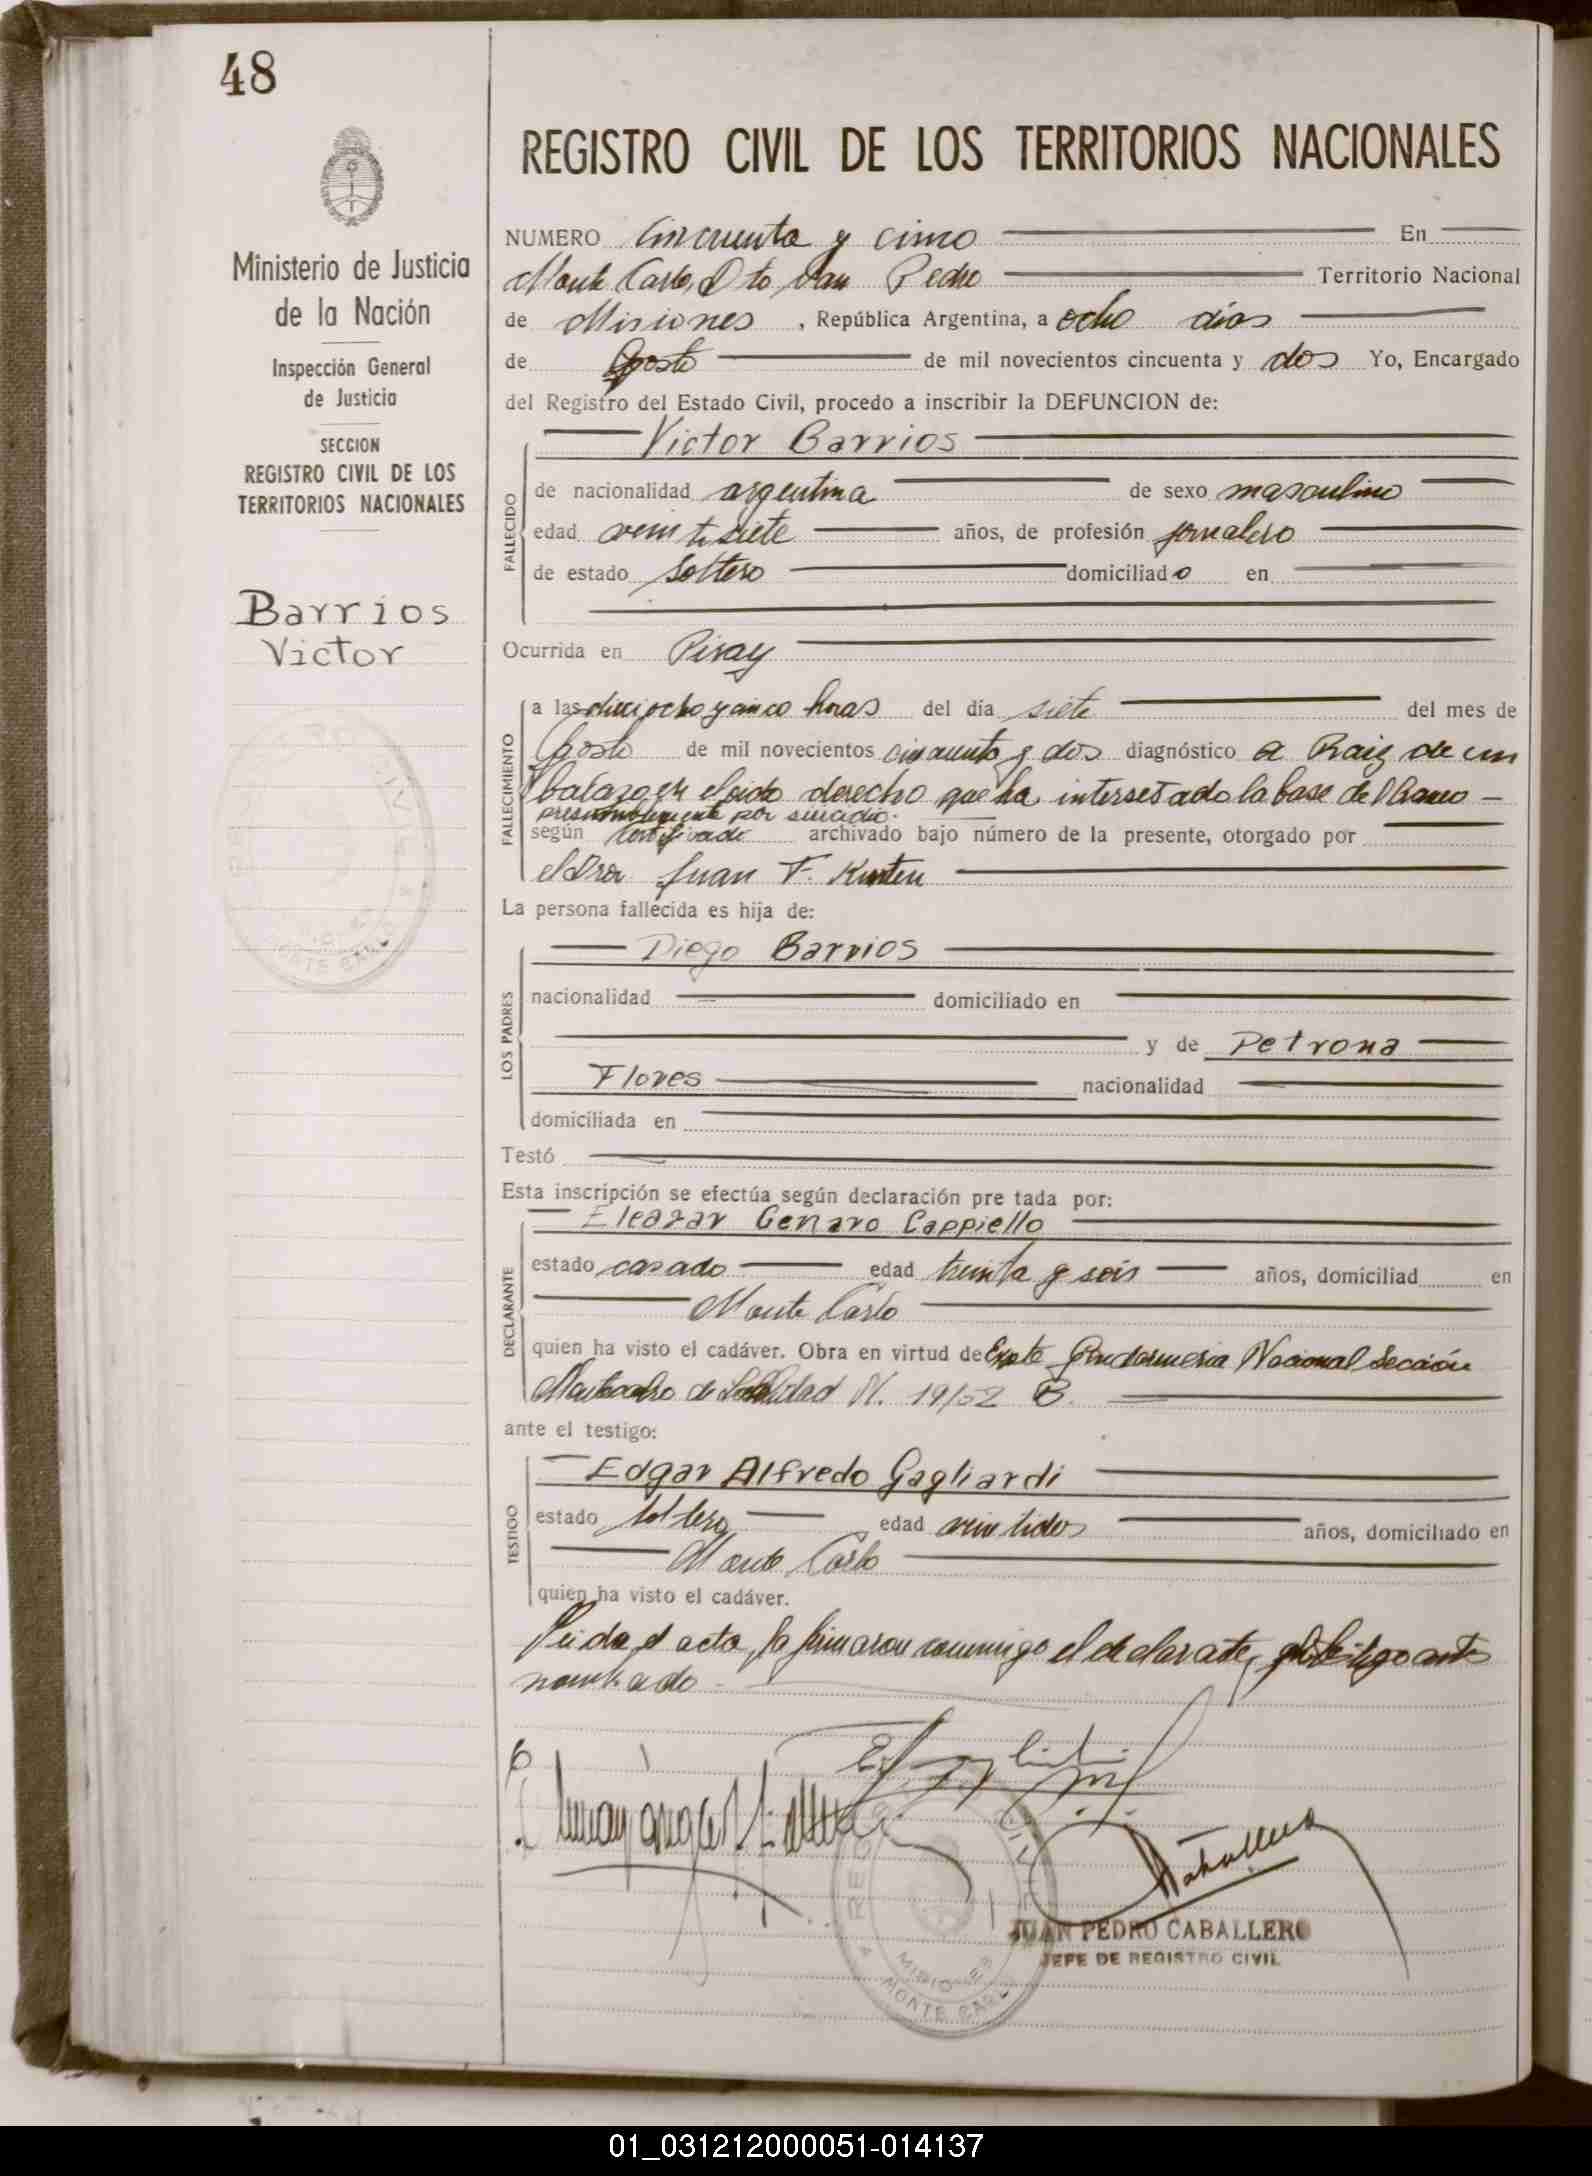 48
REGISTRO CIVIL DE LOS TERRITORIOS NACIONALES
Ministerio de Justicia
de la Nación
Inspección General
de Justicia
SECCION
REGISTRO CIVIL DE LOS
TERRITORIOS NACIONALES
Barrios
Victor
NUMERO Cincuenta y cinco En
Monte Carlo, Dto San Pedro Territorio Nacional
de Misiones, República Argentina, a ocho dias
de Agosto de mil novecientos cincuenta y dos Yo, Encargado
del Registro del Estado Civil, procedo a inscribir la DEFUNCION de:
Victor Barrios
FALLECIDO
de nacionalidad argentina de sexo masculino
edad veintisiete años, de profesión jornalero
de estado soltero domiciliado en
Ocurrida en Piray
FALLECIMIENTO
a las dieciocho y cinco horas del día siete del mes de
Agosto de mil novecientos cincuenta y dos diagnóstico a Raiz de un
balazo en el oido derecho que ha intersetado la base del Craneo
por
según certificado archivado bajo número de la presente, otorgado por
el Dror Juan F. Kusten
La persona fallecida es hija de:
LOS PADRES
Diego Barrios
nacionalidad domiciliado en
y de Petrona
Flores nacionalidad
domiciliada en
Testó
Esta inscripción se efectúa según declaración pre tada por:
DECLARANTE
Eleazar Genaro Cappiello
estado casado edad treinta y seis años, domiciliad en
Monte Carlo
quien ha visto el cadáver. Obra en virtud de Expte Gendarmeria Nacional Sección
de N. 19/52 B.
ante el testigo:
TESTIGO
Edgar Alfredo Gagliardi
estado soltero edad veintidos años, domiciliado en
Monte Carlo
quien ha visto el cadáver.
Leida el acta, la firmaron conmigo el declarante, y el testigo antes
nombrado.
JUAN PEDRO CABALLERO
JEFE DE REGISTRO CIVIL
MISIONES
MONTE CARLO
01_031212000051-014137